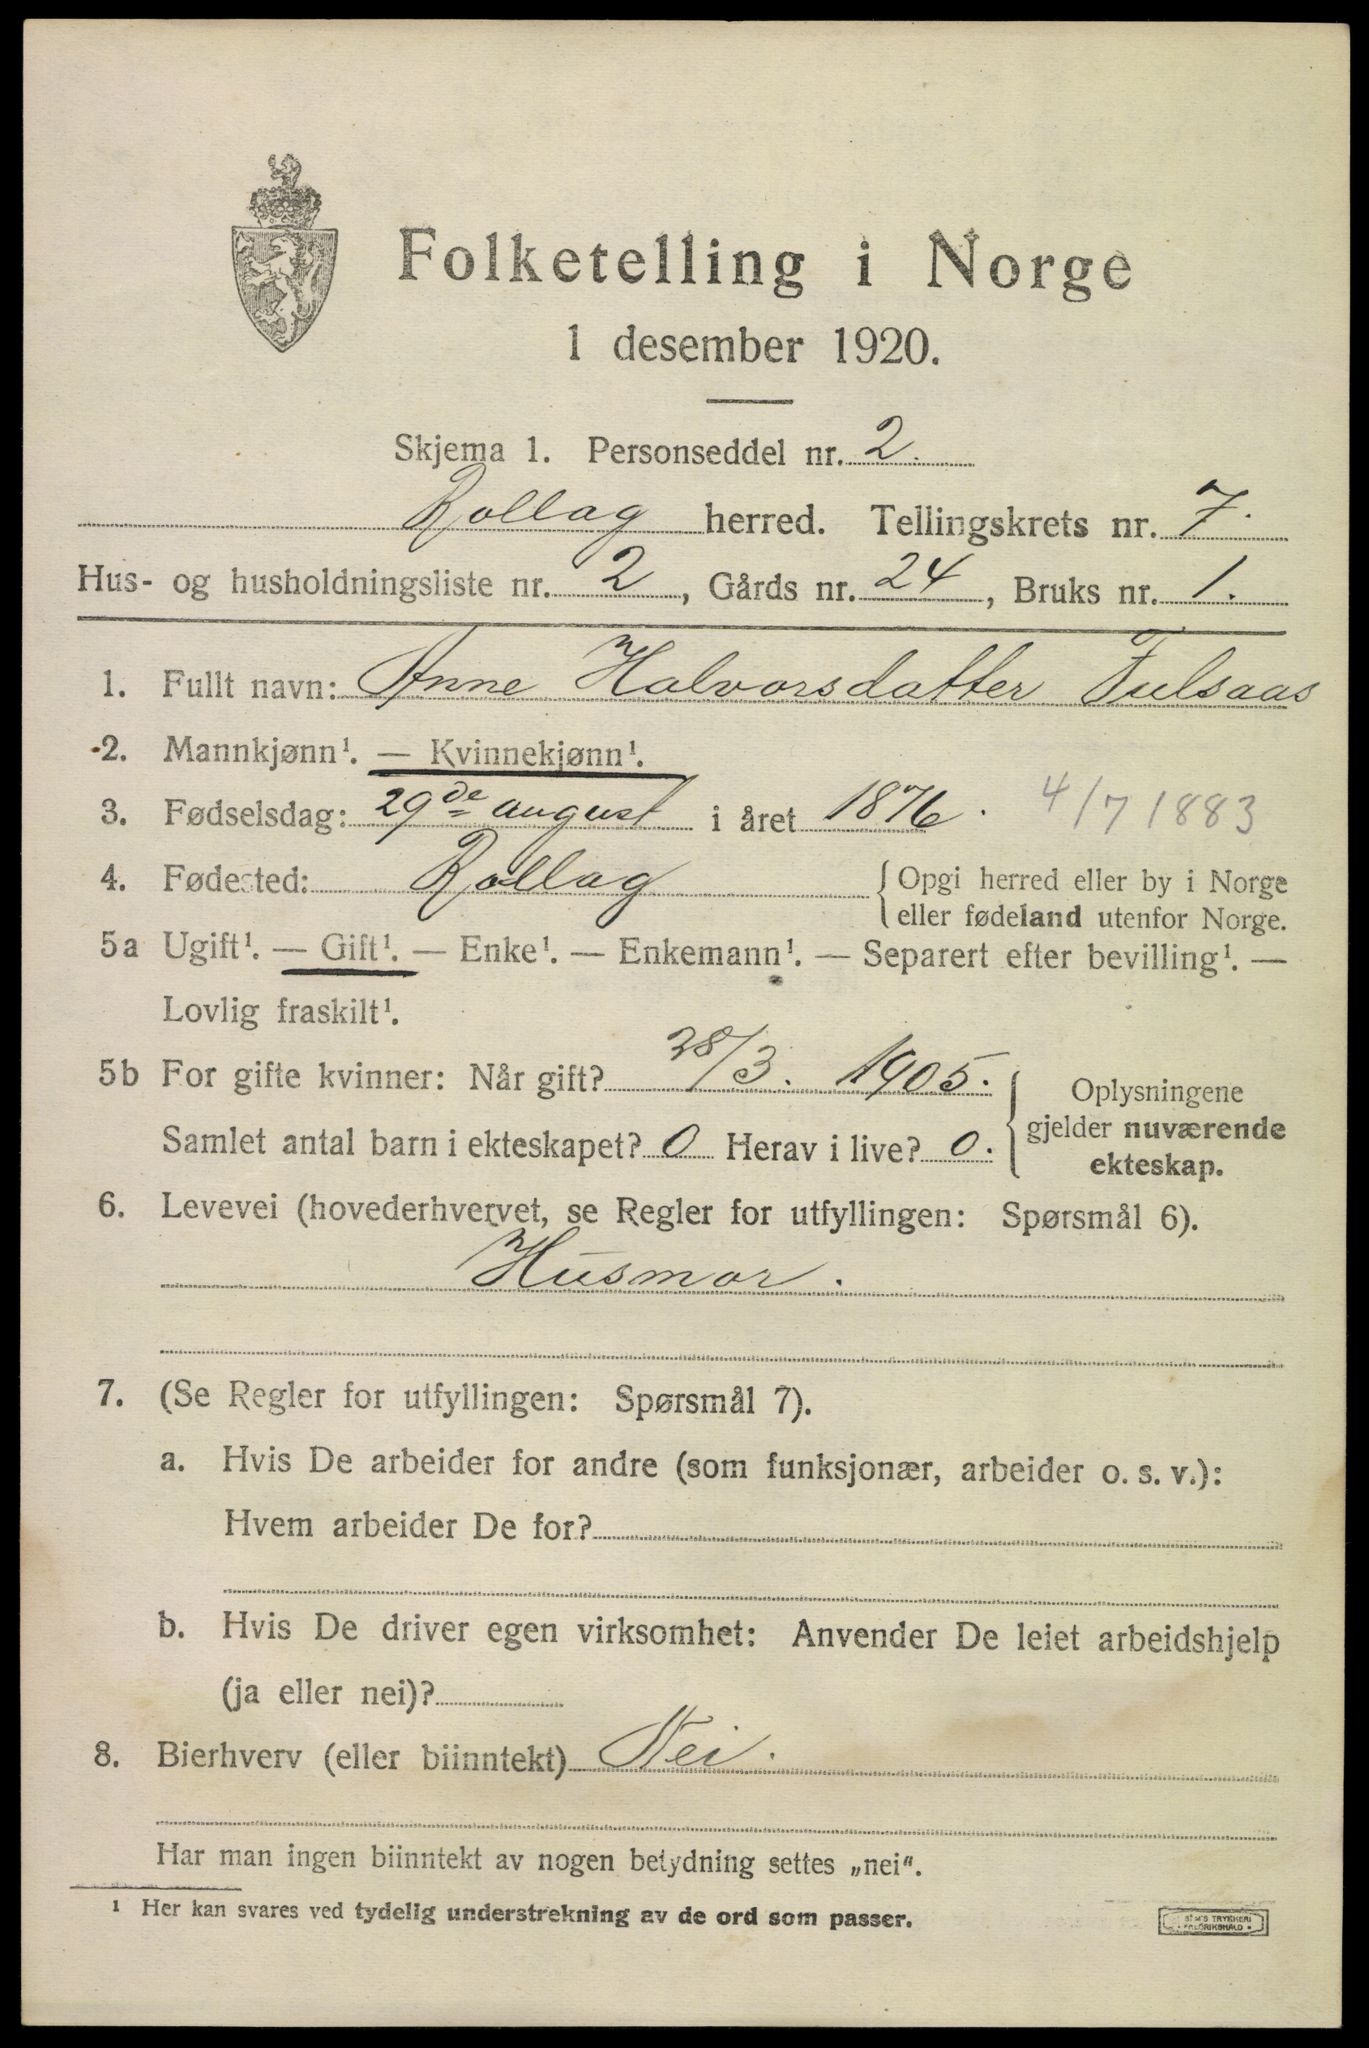 Folketelling i Norge
1 desember 1920.
Skjema 1. Personseddel nr. 2.
Rollag herred. Tellingskrets nr. 7.
Hus- og husholdningsliste nr. 2, Gårds nr. 24, Bruks nr. 1.
1. Fullt navn: Anne Halvorsdatter Fulsaas
2. Mannkjønn¹. — Kvinnekjønn¹.
3. Fødselsdag: 29de august i året 1876. 4/7 1883
4. Fødested: Rollag {Opgi herred eller by i Norge
eller fødeland utenfor Norge.
5a Ugift¹. — Gift¹. — Enke¹. — Enkemann¹. — Separert efter bevilling¹. —
Lovlig fraskilt¹.
5b For gifte kvinner: Når gift? 28/3. 1905. {Oplysningene
Samlet antal barn i ekteskapet? 0 Herav i live? 0. gjelder nuværende
ekteskap.
6. Levevei (hovederhvervet, se Regler for utfyllingen: Spørsmål 6).
Husmor.
7. (Se Regler for utfyllingen: Spørsmål 7).
a. Hvis De arbeider for andre (som funksjonær, arbeider o. s. v.):
Hvem arbeider De for?
b. Hvis De driver egen virksomhet: Anvender De leiet arbeidshjelp
(ja eller nei)?
8. Bierhverv (eller biinntekt) Nei.
Har man ingen biinntekt av nogen betydning settes „nei".
¹ Her kan svares ved tydelig understrekning av de ord som passer.
TRYKKERI
FREDRIKSHALD